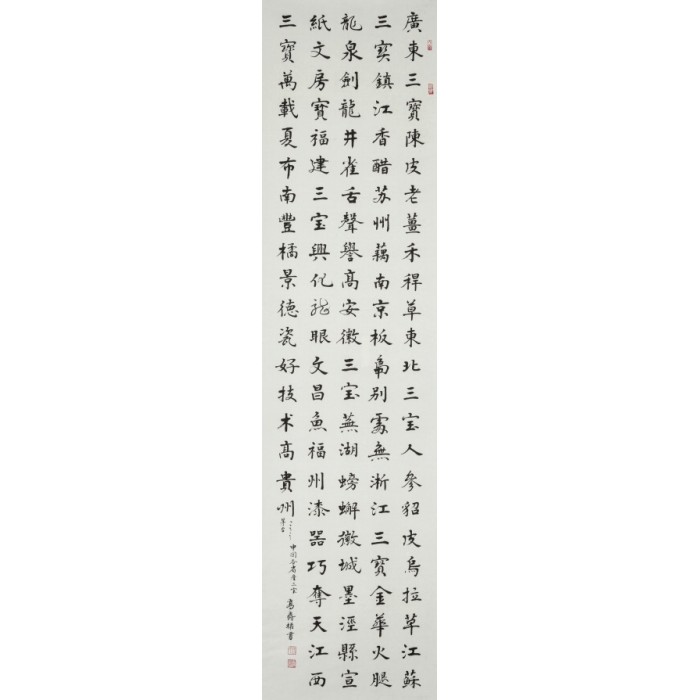 廣東三寶陳皮老薑禾稈草東北三宝人參貂皮烏拉草江蘇
三宝鎮江香醋苏州藕南京板鴨別處無浙江三寶金華火腿
龍泉劍龍井雀舌聲譽高安徽三宝蕪湖螃蟹徽城墨涇縣宣
紙文房寶福建三宝興化龙眼文昌魚福州漆器巧奪天江西
三寶萬載夏布南豐橘景德瓷好技术高貴州
中國各省產三宝
書